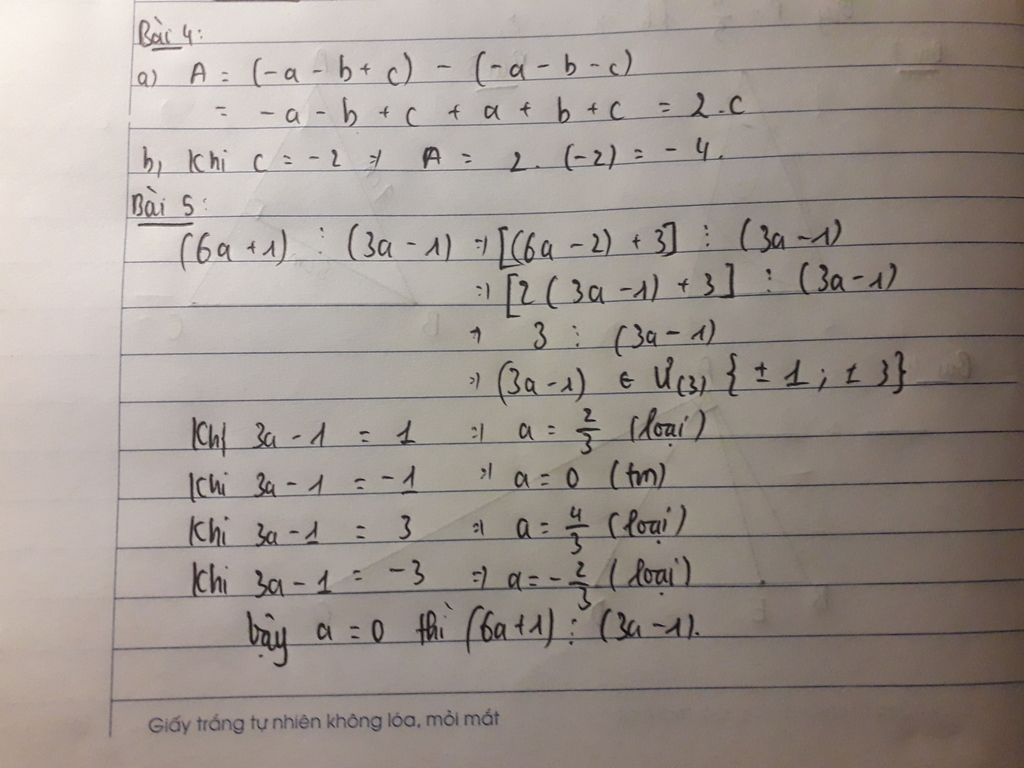 Bài 4:
a) A = (-a - b + c) - (-a - b - c)
= -a - b + c + a + b + c = 2.c
b, Khi c = -2 => A = 2. (-2) = -4.
Bài 5:
(6a + 1) ⋮ (3a - 1) => [(6a - 2) + 3] ⋮ (3a - 1)
=> [2(3a - 1) + 3] ⋮ (3a - 1)
=> 3 ⋮ (3a - 1)
=> (3a - 1) ∈ Ư(3) {±1; ±3}
Khi 3a - 1 = 1 => a = 2/3 (loại)
Khi 3a - 1 = -1 => a = 0 (tm)
Khi 3a - 1 = 3 => a = 4/3 (loại)
Khi 3a - 1 = -3 => a = -2/3 (loại)
bậy a = 0 thì (6a + 1) ⋮ (3a - 1).
Giấy trắng tự nhiên không lóa, mỏi mắt